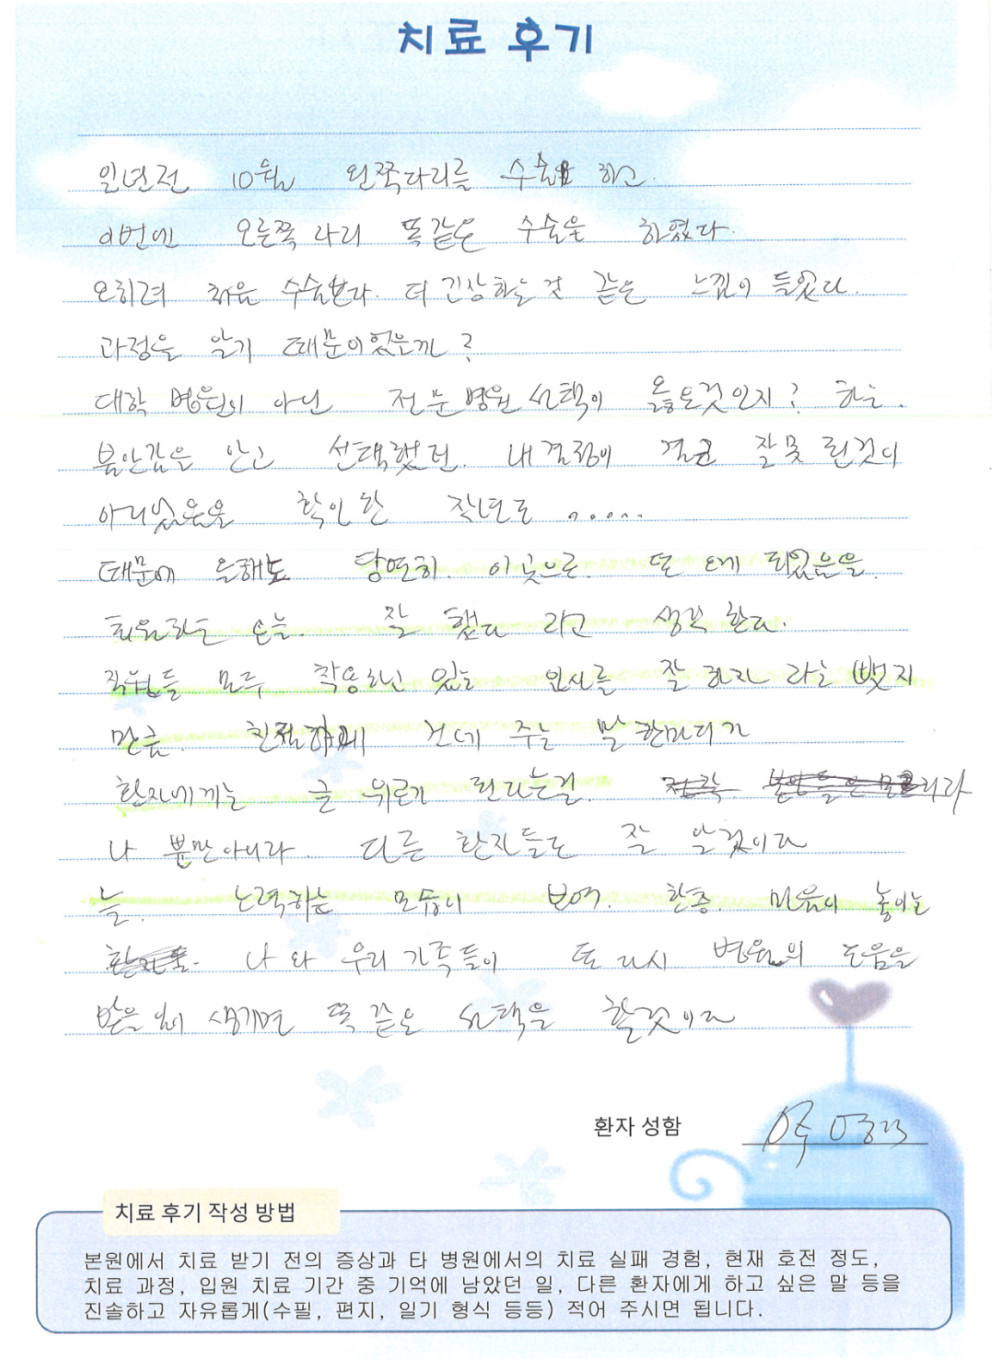 치료 후기
일년전 10월 왼쪽다리를 수술 하고.
이번에 오른쪽 다리 똑같은 수술을 하였다.
오히려 처음 수술보다. 더 긴장하는 것 같은 느낌이 들었다.
과정을 알기 때문이었을까?
대학 병원이 아닌 전문병원 선택이 옳은것인지? 하는.
불안감을 안고 선택했던. 내 결정이 결코 잘못 된것이
아니었음을 확인한 작년도 .....
때문에 올해도 당연히. 이곳으로. 또 오게 되었음을.
퇴원하는 오늘. 잘 했다 라고 생각 한다.
직원들 모두 착용하신 있는 인사를 잘 하자 라는 뺏지
만큼. 친절하게 건네 주는 말 한마디가
환자에게는 큰 위로가 된다는걸.
나 뿐만아니라. 다른 환자들도 잘 알것이다
늘. 노력하는 모습이 보여. 한층. 마음이 놓이는
나 와 우리 가족들이 또 다시 병원의 도움을
받을 일이 생기면 똑 같은 선택을 할것이다
환자 성함
치료 후기 작성 방법
본원에서 치료 받기 전의 증상과 타 병원에서의 치료 실패 경험, 현재 호전 정도,
치료 과정, 입원 치료 기간 중 기억에 남았던 일, 다른 환자에게 하고 싶은 말 등을
진솔하고 자유롭게(수필, 편지, 일기 형식 등등) 적어 주시면 됩니다.